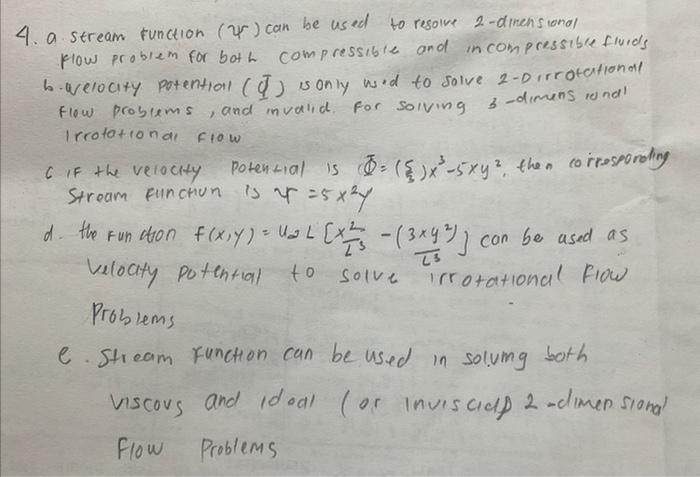 4. a. stream function (ψ) can be used to resolve 2-dimensional
flow problem for both compressible and incompressible fluids
b. velocity potential (Φ) is only used to solve 2-D irrotational
flow problems, and invalid for solving 3-dimensional
Irrotational flow
c. IF the velocity potential is Φ = (5/3)x³ - 5xy², then corresponding
stream function is ψ = 5x²y
d. the function f(x,y) = U∞ L [x²/L³ - (3xy²)/L³] can be used as
velocity potential to solve irrotational flow
Problems
e. stream function can be used in solving both
viscous and ideal (or inviscid) 2-dimensional
Flow Problems